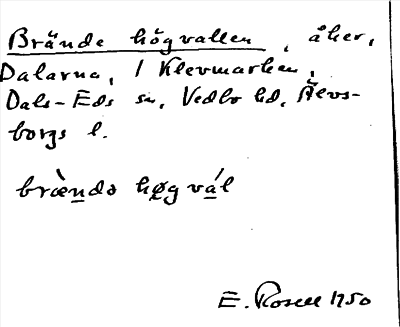 Brände högvallen, åker,
Dalarna, / Klevmarken,
Dals-Eds sn, Vedbo hd, Älvs-
borgs l.
bræ̀ndə høgvál
E. Rosell 1950